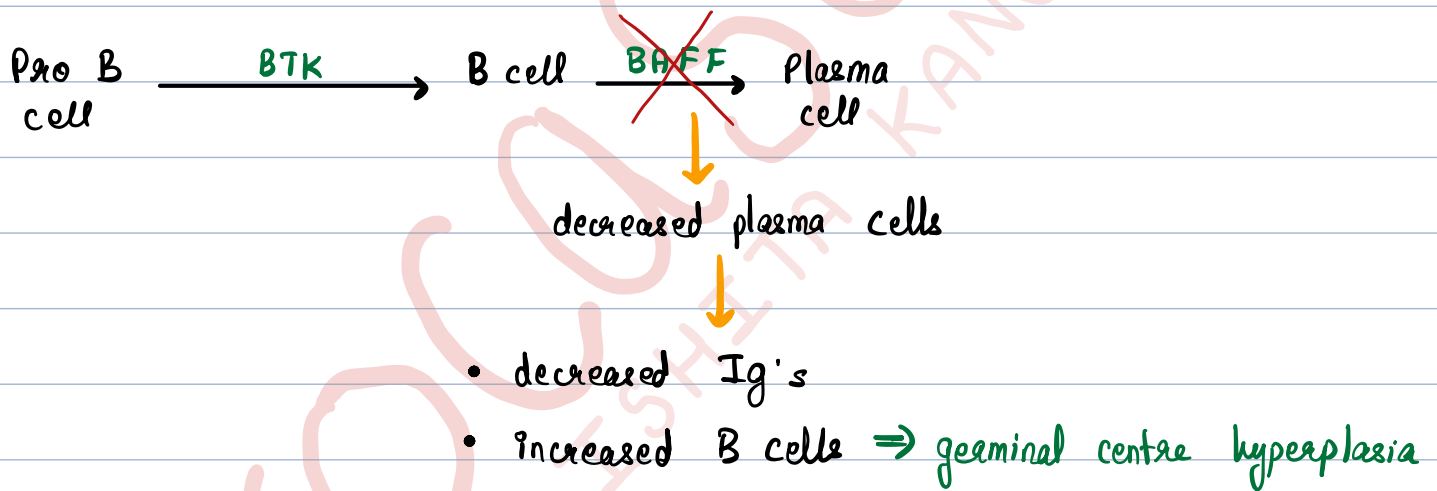 Pro B cell BTK B cell BAFF Plasma cell
decreased plasma cells
• decreased Ig's
• increased B cells ⇒ germinal centre hyperplasia
ISHITA KAN